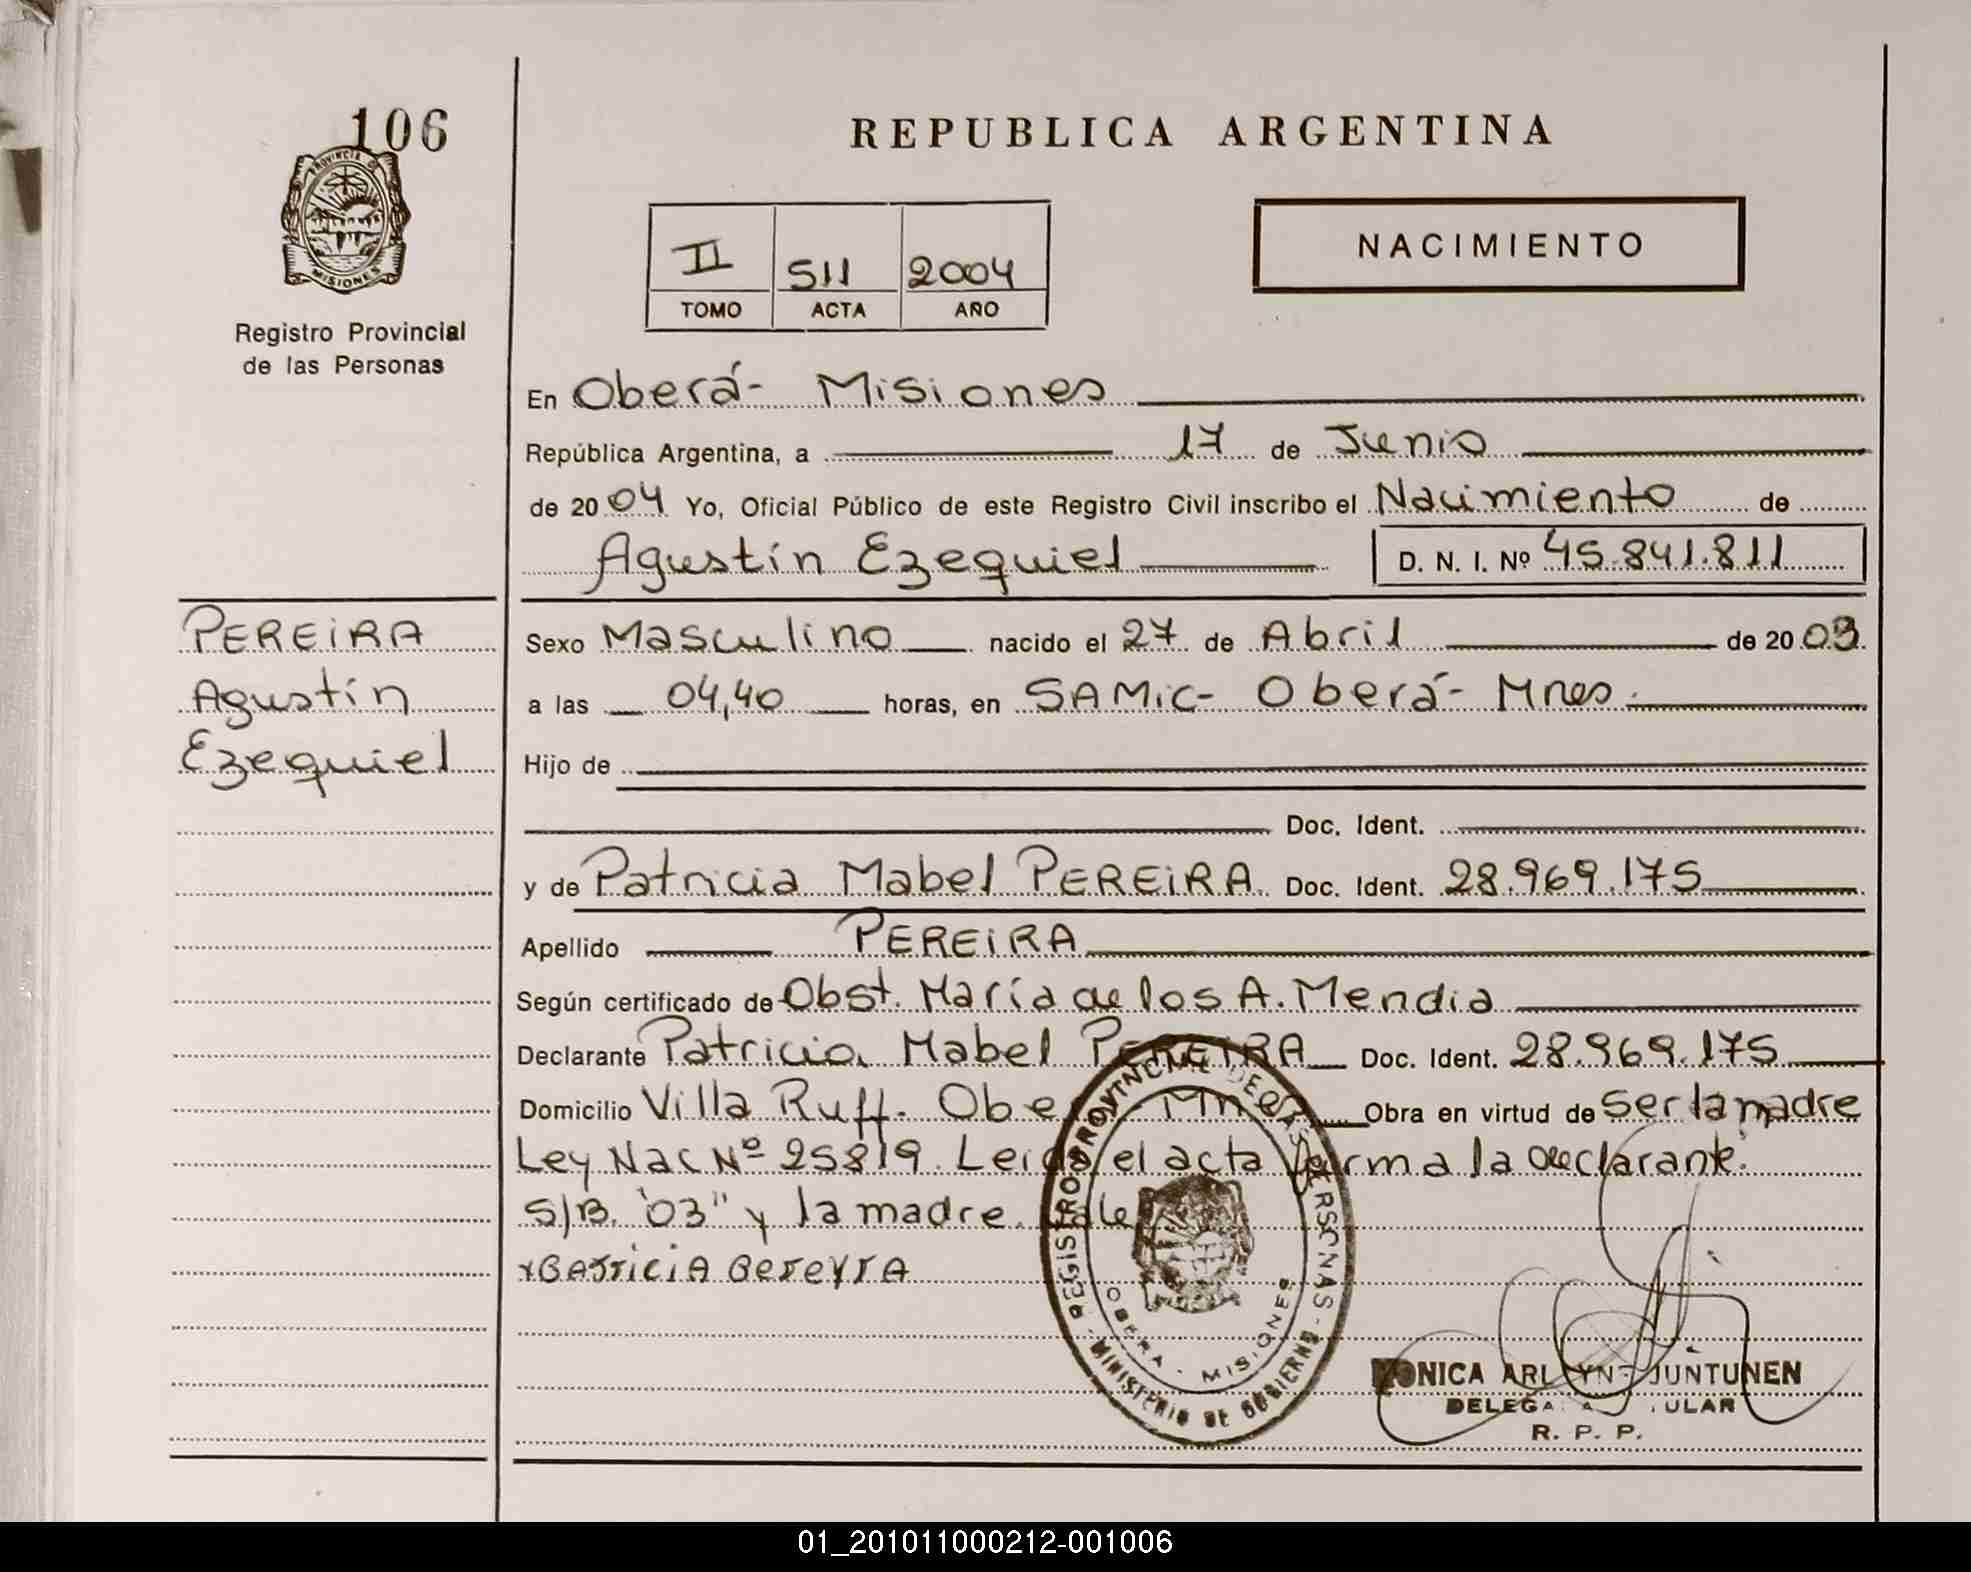 106
PROVINCIA DE
MISIONES
Registro Provincial
de las Personas
REPUBLICA ARGENTINA
NACIMIENTO
II 511 2004
TOMO ACTA AÑO
En Oberá- Misiones
República Argentina, a 17 de Junio
de 20 04 Yo, Oficial Público de este Registro Civil inscribo el Nacimiento de
Agustín Ezequiel D. N. I. Nº 45.841.811
PEREIRA
Agustín
Ezequiel
Sexo Masculino nacido el 27 de Abril de 20 03.
a las 04,40 horas, en SAMiC- Oberá- Mnes.
Hijo de
Doc. Ident.
y de Patricia Mabel PEREIRA Doc. Ident. 28.969.175
Apellido PEREIRA
Según certificado de Obst. María de los A. Mendia
Declarante Patricia Mabel PEREIRA Doc. Ident. 28.969.175
Domicilio Villa Ruff. Obe Mnes Obra en virtud de ser la madre
Ley Nac Nº 25819. Leida el acta firma la declarante.
S/B. "03" y la madre. Vale
xBatriciA BereyrA
REGISTRO PROVINCIAL DE LAS PERSONAS - MINISTERIO DE GOBIERNO
OBERA - MISIONES
MONICA ARLYNE JUNTUNEN
DELEGADA TITULAR
R. P. P.
01_201011000212-001006